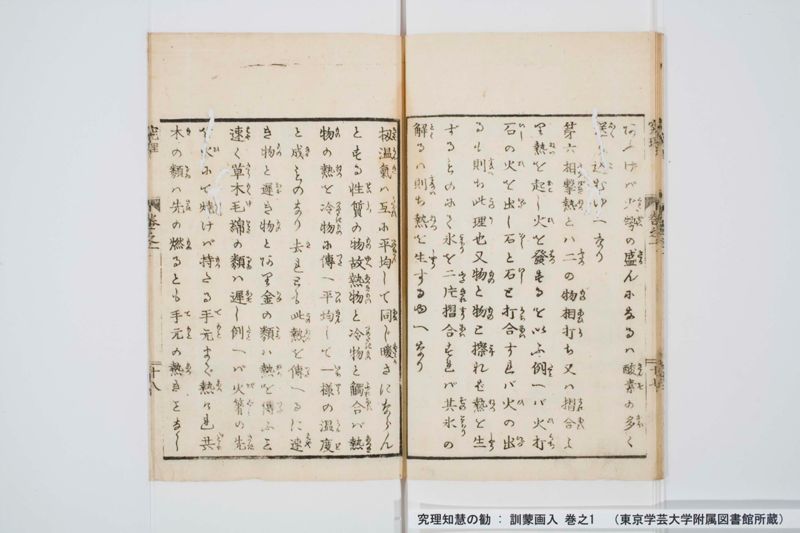 あふげバ火勢の盛んになるハ酸素の多く
込むゆへなり
第六相撃熱とハ二の物相打ち又ハ摺合よ
り熱を起し火を發するを以ふ例へバ火打
石の火を出し石と石と打合すれバ火の出
るも則ち此理也又物と物と擦れも熱を生
するものにて氷を二片摺合すれバ其氷の
解るハ則ち熱を生するゆへなり
扨温氣ハ互に平均して同じ暖さにならん
とする性質の物故熱物と冷物と觸合ハ熱
物の熱を冷物に傳へ平均して一様の温度
と成ものなり去れども此熱を傳へるに速
き物と遅き物とあり金の類ハ熱を傳ふこと
速く草木毛綿の類ハ遅し例へバ火箸の先
を火にて焼けバ持たる手元まで熱くなれ共
木の類ハ先の燃るとも手元の熱きことなし
究理
巻之一
十七
究理
巻之一
十八
究理知慧の勧 : 訓蒙画入 巻之1 （東京学芸大学附属図書館所蔵）